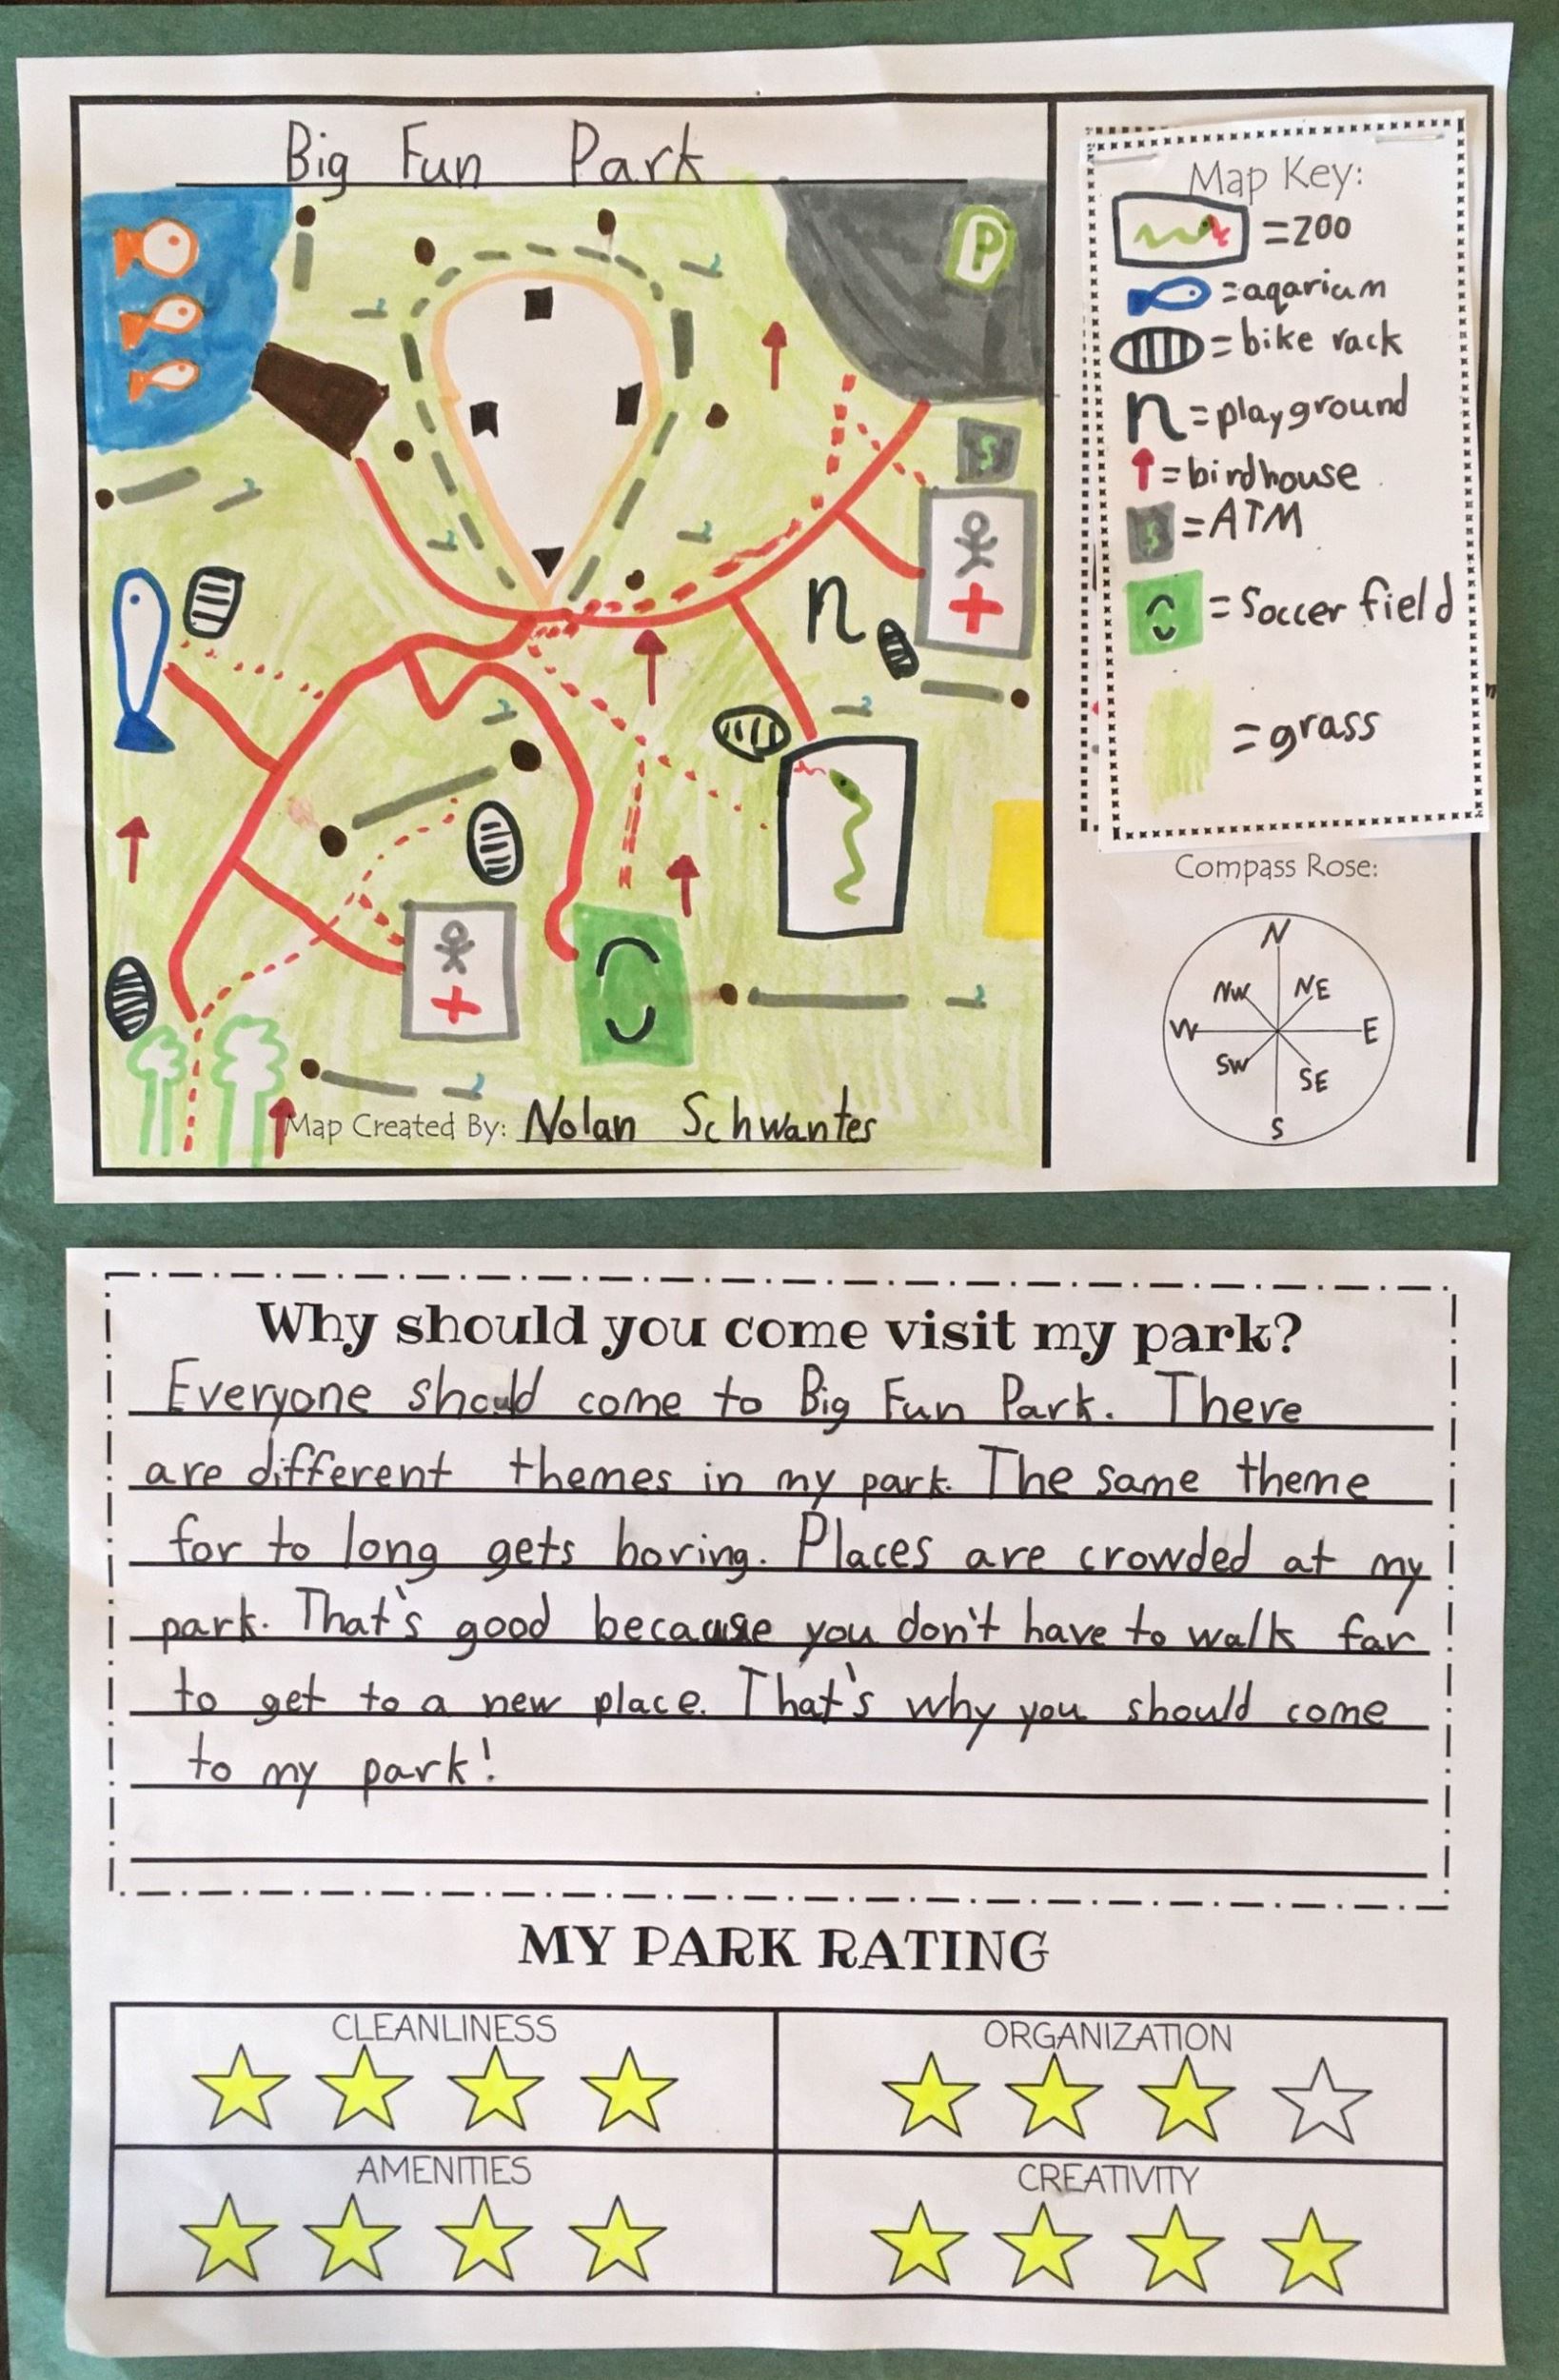 Big Fun Park
P
Map Key:
=zoo
=aqarium
=bike rack
=playground
=birdhouse
$ =ATM
=Soccer field
=grass
$
Compass Rose:
N
NW NE
W E
SW SE
S
Map Created By: Nolan Schwantes
Why should you come visit my park?
Everyone should come to Big Fun Park. There
are different themes in my park. The same theme
for to long gets boring. Places are crowded at my
park. That's good because you don't have to walk far
to get to a new place. That's why you should come
to my park!
MY PARK RATING
CLEANLINESS
ORGANIZATION
AMENITIES
CREATIVITY